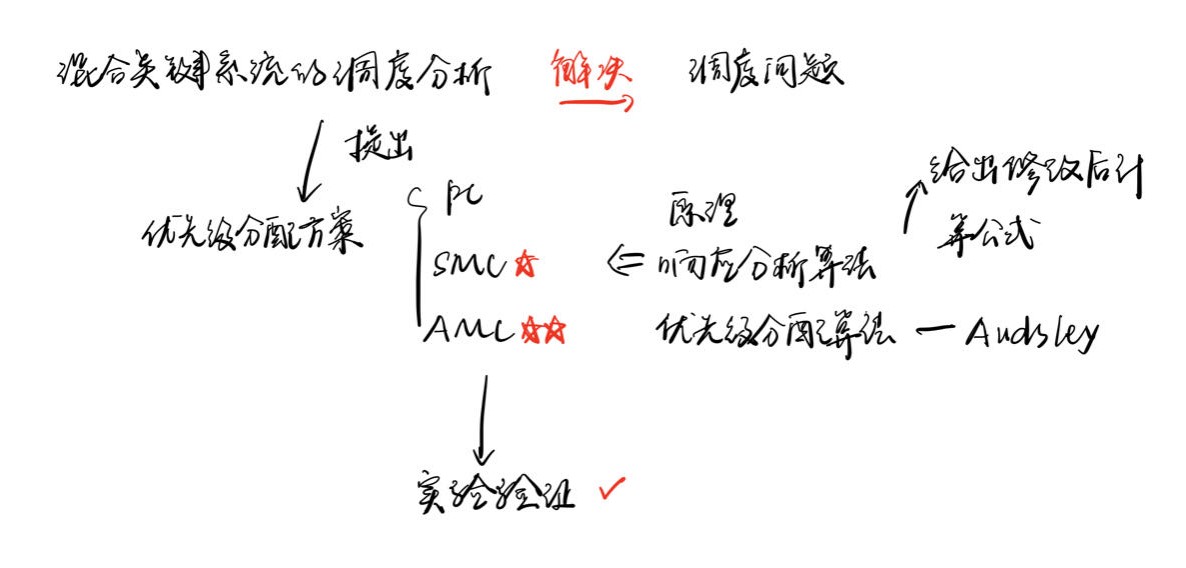 混合关键系统的调度分析 解决 调度问题
提出
优先级分配方案
PC
SMC
AMC
原理
响应分析算法
给出修改后计
算公式
优先级分配算法 — Audsley
实验验证